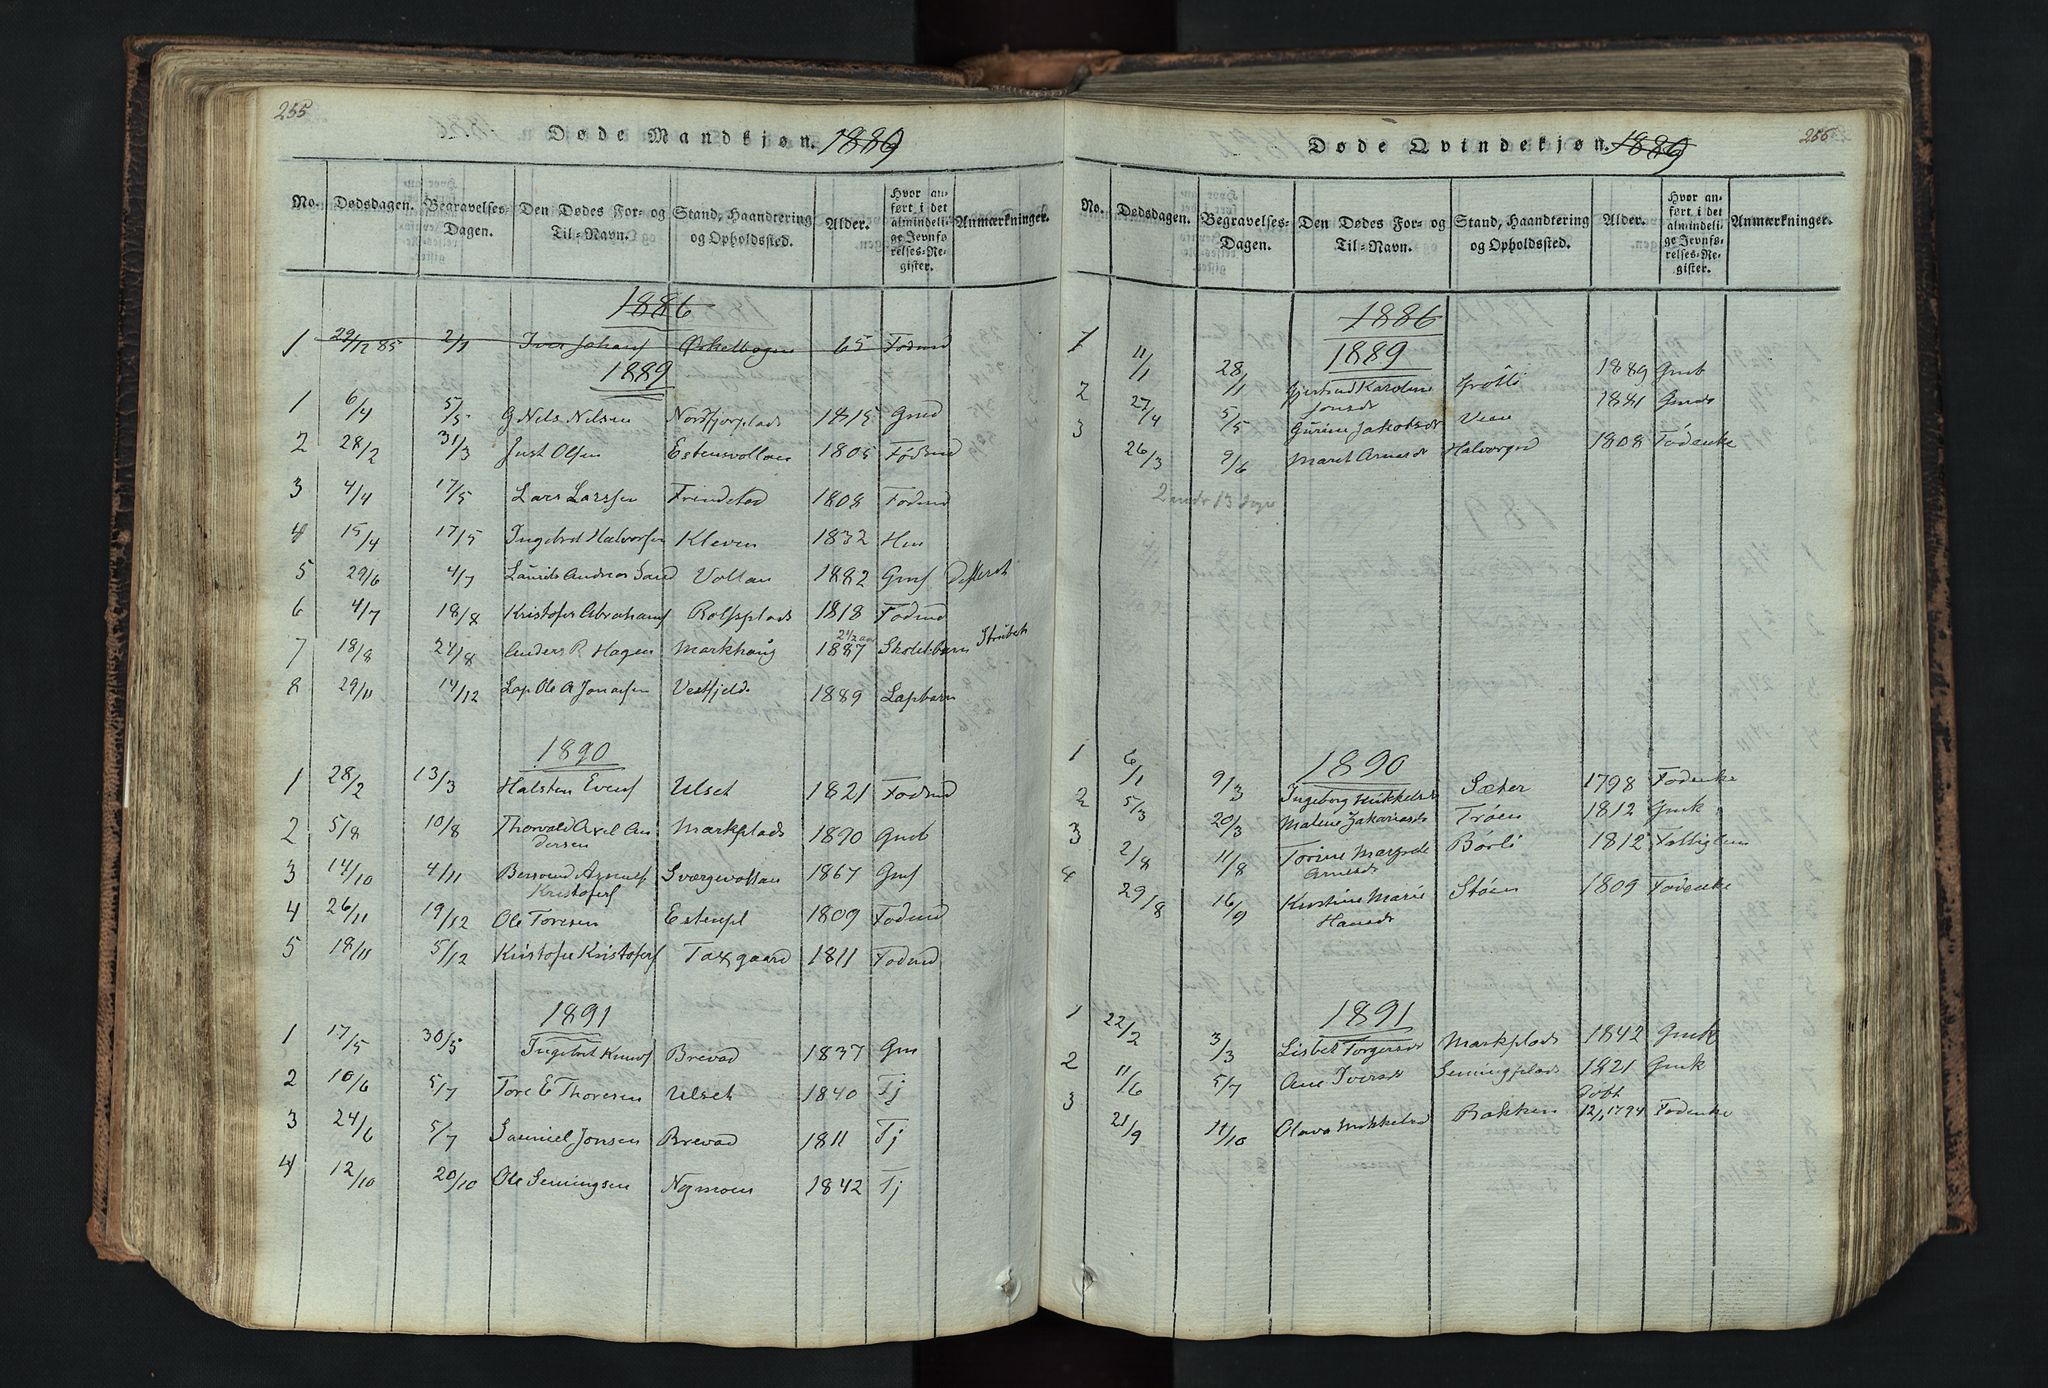 255
Døde Mandskjøn. 1889
No. Dødsdagen. Begravelses-Dagen. Den Dødes For- og Til-Navn. Stand, Haandtering og Opholdssted. Alder. Hvor anført i det almindelige Jevnførelses-Register. Anmærkninger.
1886
1 29/12 85 2/1 Iver Johans 65 Fodmd
1889
1 6/4 5/5 G Nels Nilsen Nordfjorplads 1815 Gmd
2 28/2 31/3 Just Olsen Estensvollen 1805 Fødmd
3 4/4 17/5 Lars Larssen Trindstad 1808 Fodmd
4 15/4 17/5 Ingebret Halvorsen Kleven 1832 Hm
5 29/6 4/7 Laurits Andreas Sand Voltan 1882 Gms
6 4/7 18/8 Kristofer Abrahams Rolfsplads 1818 Fodmd
2 1/2 aar
7 18/8 24/8 Anders R Hagen Markhaug 1887 Strubeh
8 29/11 14/12 Lap Ole A Jonassen Vestfjeld 1889 Lapbarn
1890
1 28/2 13/3 Halsten Evens Ulset 1821 Fodmd
2 5/8 10/8 Thorvald Axel An Markplads 1890 Gmb
dersen
3 14/10 4/11 Sværgevollan 1867 Gms
Kristofers
4 26/11 19/12 Ole Toresen Estenpl 1809 Fodmd
5 18/11 5/12 Kristofer Kristofers Taxgaard 1811 Fodmd
1891
1 17/5 30/5 Ingebret Knuds Brevad 1837 Gm
2 10/6 5/7 Tore E Thoresen Ulset 1840 Tj
3 24/6 5/7 Samuel Jonsen Brevad 1811 Tj
4 12/10 20/10 Ole Semingsen Nymoen 1842 Tj
256
Døde Qvindekjøn. 1889
No. Dødsdagen. Begravelses-Dagen. Den Dødes For- og Til-Navn. Stand, Haandtering og Opholdssted. Alder. Hvor anført i det almindelige Jevnførelses-Register. Anmærkninger.
1886
1889
1 11/1 28/1 Gjertrud Karoline Grøtli 1889 Gmb
Jonsdr
2 27/4 5/5 Gurine Jakobsdr Veen 1841 Gmdr
3 26/3 9/6 Maret Arnesdr Halvorgrd 1808 Fødenke
1890
1 6/1 9/3 Ingeborg Mikkelsdr Sæter 1798 Fodenke
2 5/3 20/3 Malene Zakariasdr Trøen 1812 Gmk
3 2/8 11/8 Torine Margrete Børli 1812 Fattiglem
Arnesdr
4 29/8 16/9 Kirstine Marie Støen 1809 Fodenke
Hansdr
1891
1 22/2 3/3 Lisbet Torgersdr Markplads 1842 Gmk
2 11/6 5/7 Ane Iversdr Semingplads 1821 Gmk
Født
3 21/9 11/10 Olava Mikkelsd Bakken 12/1 1794 Fodenke